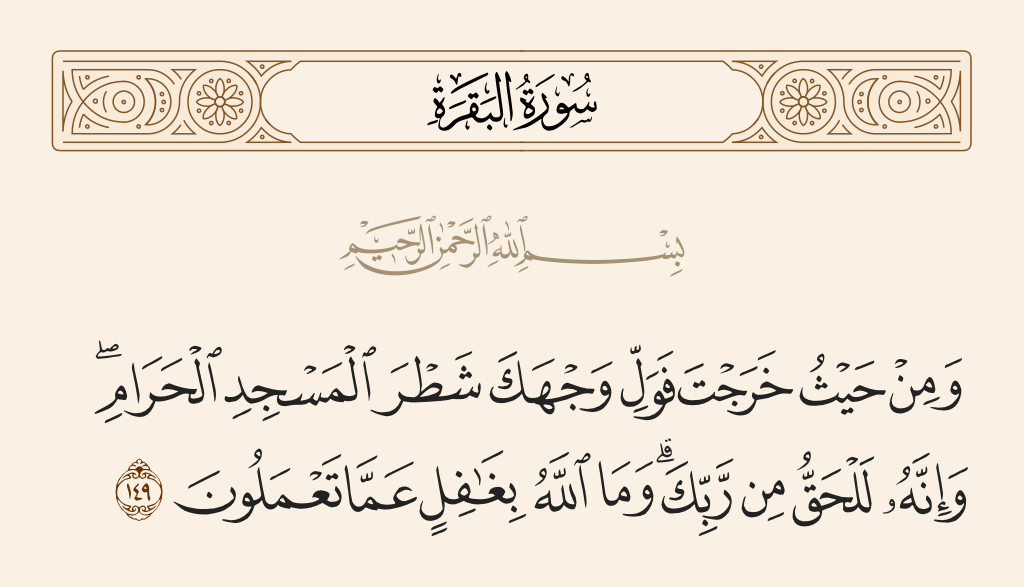 سُورَةُ البَقَرَةِ
بِسْمِ ٱللَّهِ ٱلرَّحْمَٰنِ ٱلرَّحِيمِ
وَمِنْ حَيْثُ خَرَجْتَ فَوَلِّ وَجْهَكَ شَطْرَ ٱلْمَسْجِدِ ٱلْحَرَامِ ۖ
وَإِنَّهُۥ لَلْحَقُّ مِن رَّبِّكَ ۗ وَمَا ٱللَّهُ بِغَٰفِلٍ عَمَّا تَعْمَلُونَ ١٤٩